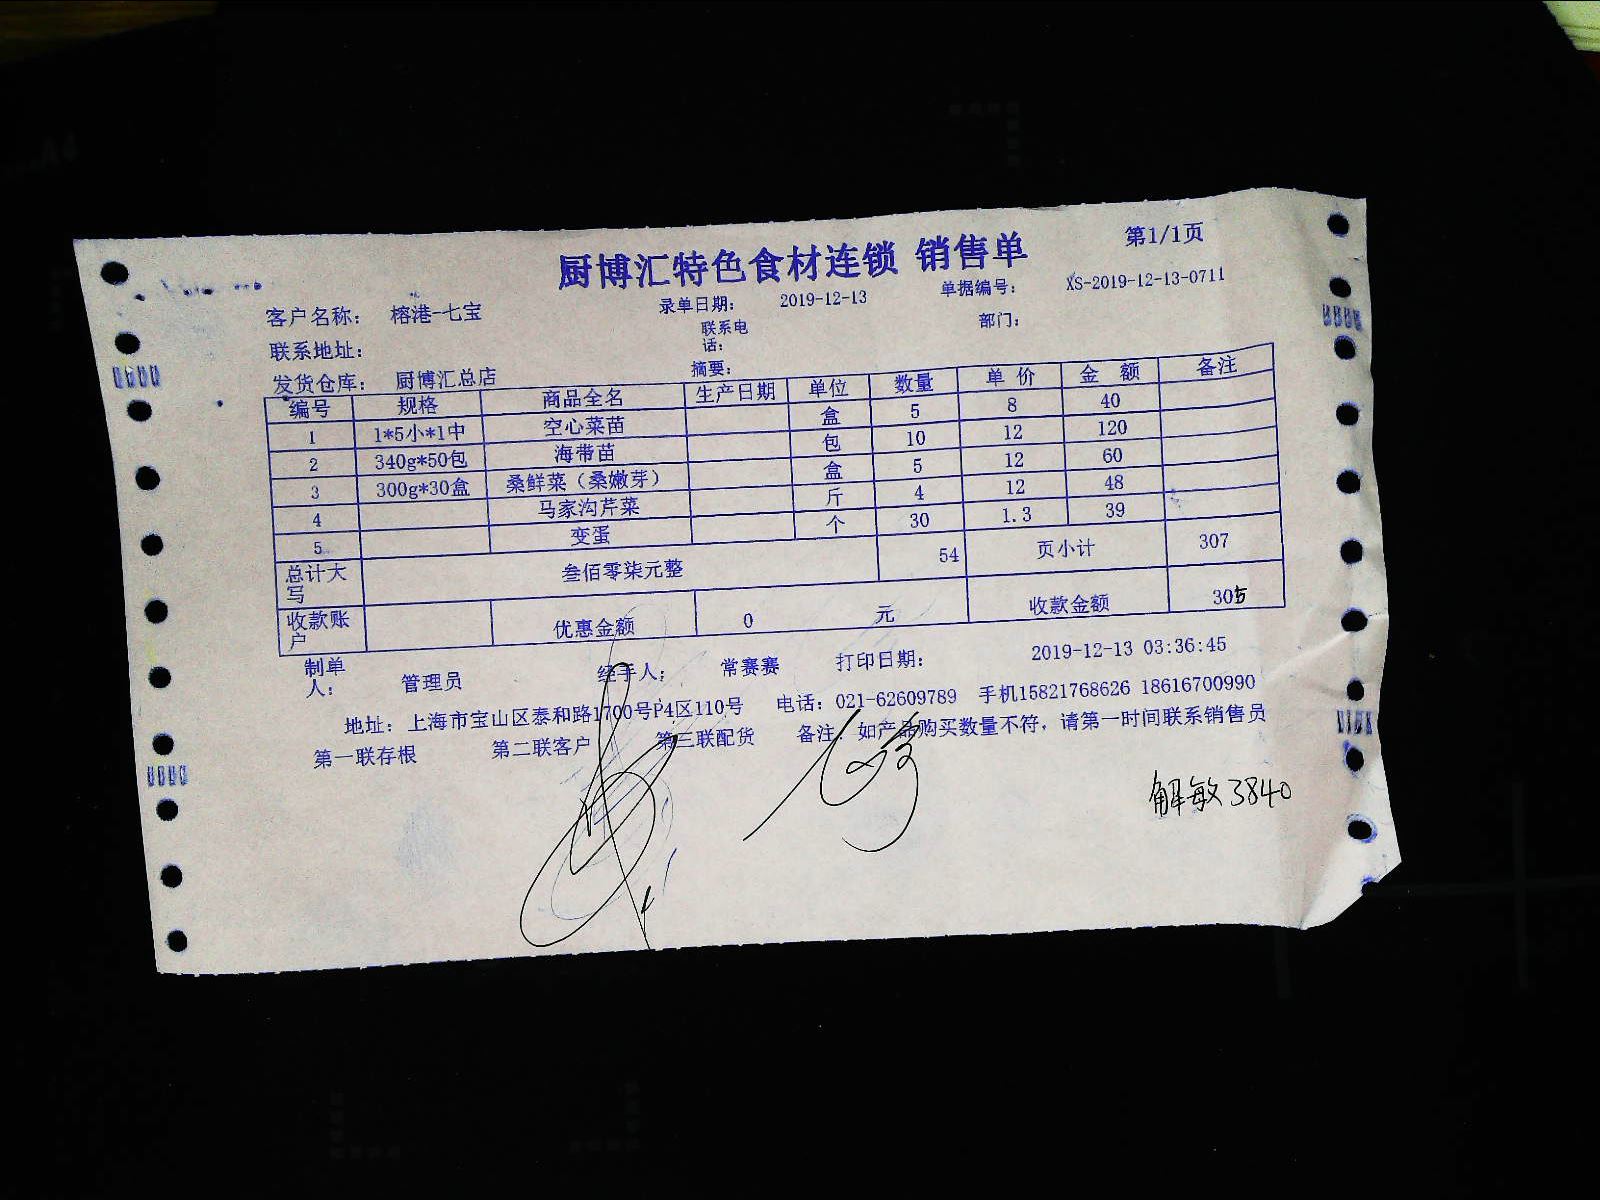 厨博汇特色食材连锁 销售单 第1/1页
客户名称： 榕港-七宝 录单日期： 2019-12-13 单据编号： XS-2019-12-13-0711
联系地址： 联系电话： 部门：
发货仓库： 厨博汇总店 摘要：
编号 规格 商品全名 生产日期 单位 数量 单 价 金 额 备注
1 1*5小*1中 空心菜苗 盒 5 8 40
2 340g*50包 海带苗 包 10 12 120
3 300g*30盒 桑鲜菜（桑嫩芽） 盒 5 12 60
4 马家沟芹菜 斤 4 12 48
5 变蛋 个 30 1.3 39
总计大写 叁佰零柒元整 54 页小计 307
收款账户 优惠金额 0 元 收款金额 305
制单人： 管理员 经手人： 常赛赛 打印日期： 2019-12-13 03:36:45
地址：上海市宝山区泰和路1700号P4区110号 电话：021-62609789 手机15821768626 18616700990
第一联存根 第二联客户 第三联配货 备注：如产品购买数量不符，请第一时间联系销售员
解敏3840